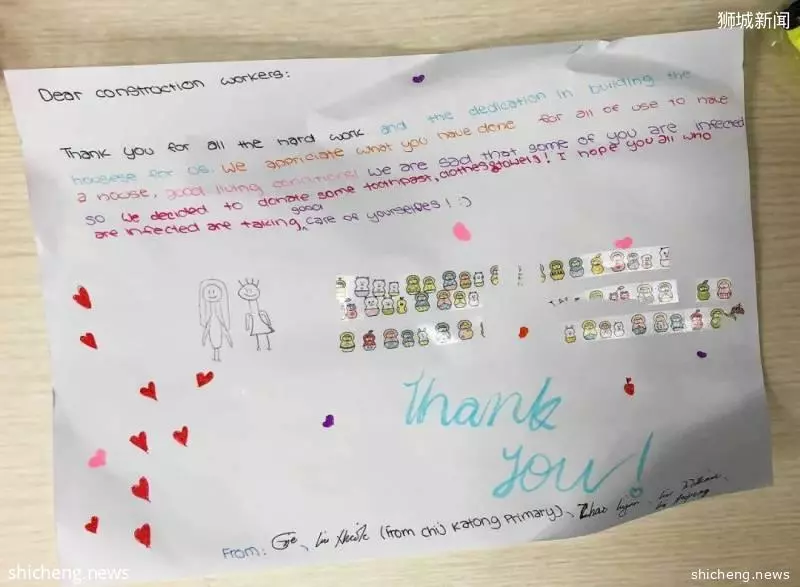 狮城新闻
Dear construction workers:
Thank you for all the hard work and the dedication in building the
houses for us. We appriciate what you have done for all of use to have
a house, good living conditions! We are sad that some of you are infected
so We decided to donate some toothpast, clothes &towels! I hope you all who
are infected are taking good care of yourselves! :)
Thank
You!
From: (from chij Katong Primary)
shicheng.news
shicheng.news